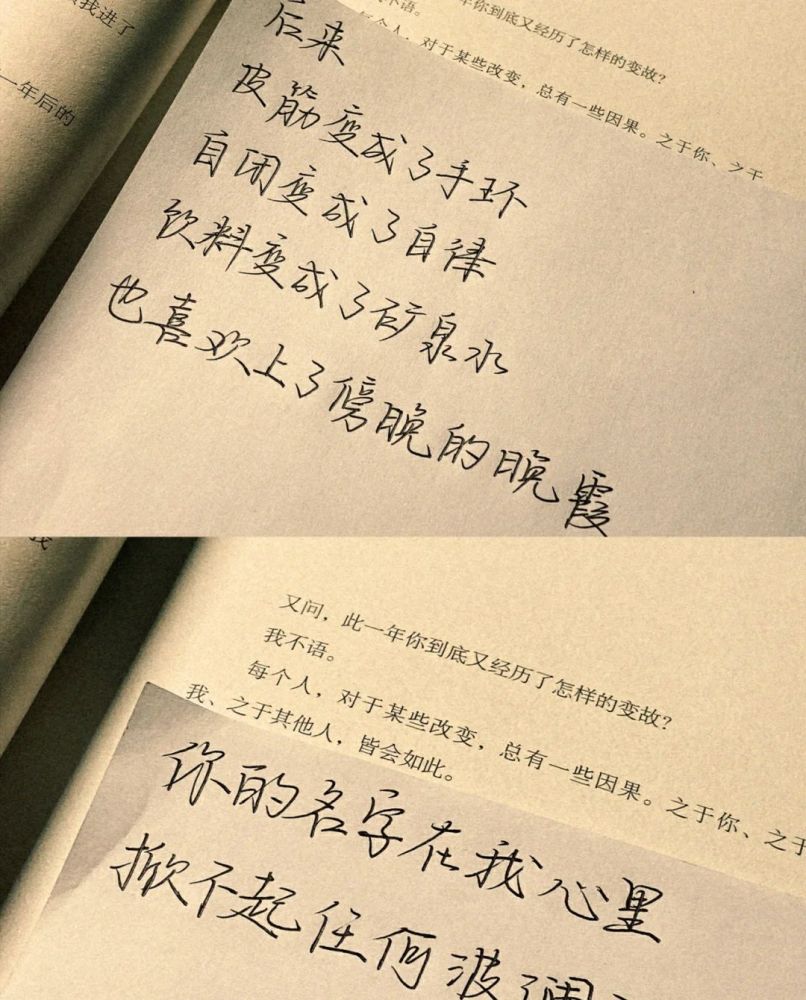 我进了
一年后的
年你到底又经历了怎样的变故？
我不语。
每个人，对于某些改变，总有一些因果。之于你、之于
后来
皮筋变成了手环
自闭变成了自律
饮料变成了矿泉水
也喜欢上了傍晚的晚霞
我
又问，此一年你到底又经历了怎样的变故？
我不语。
每个人，对于某些改变，总有一些因果。之于你、之于
我、之于其他人，皆会如此。
你的名字在我心里
掀不起任何波澜